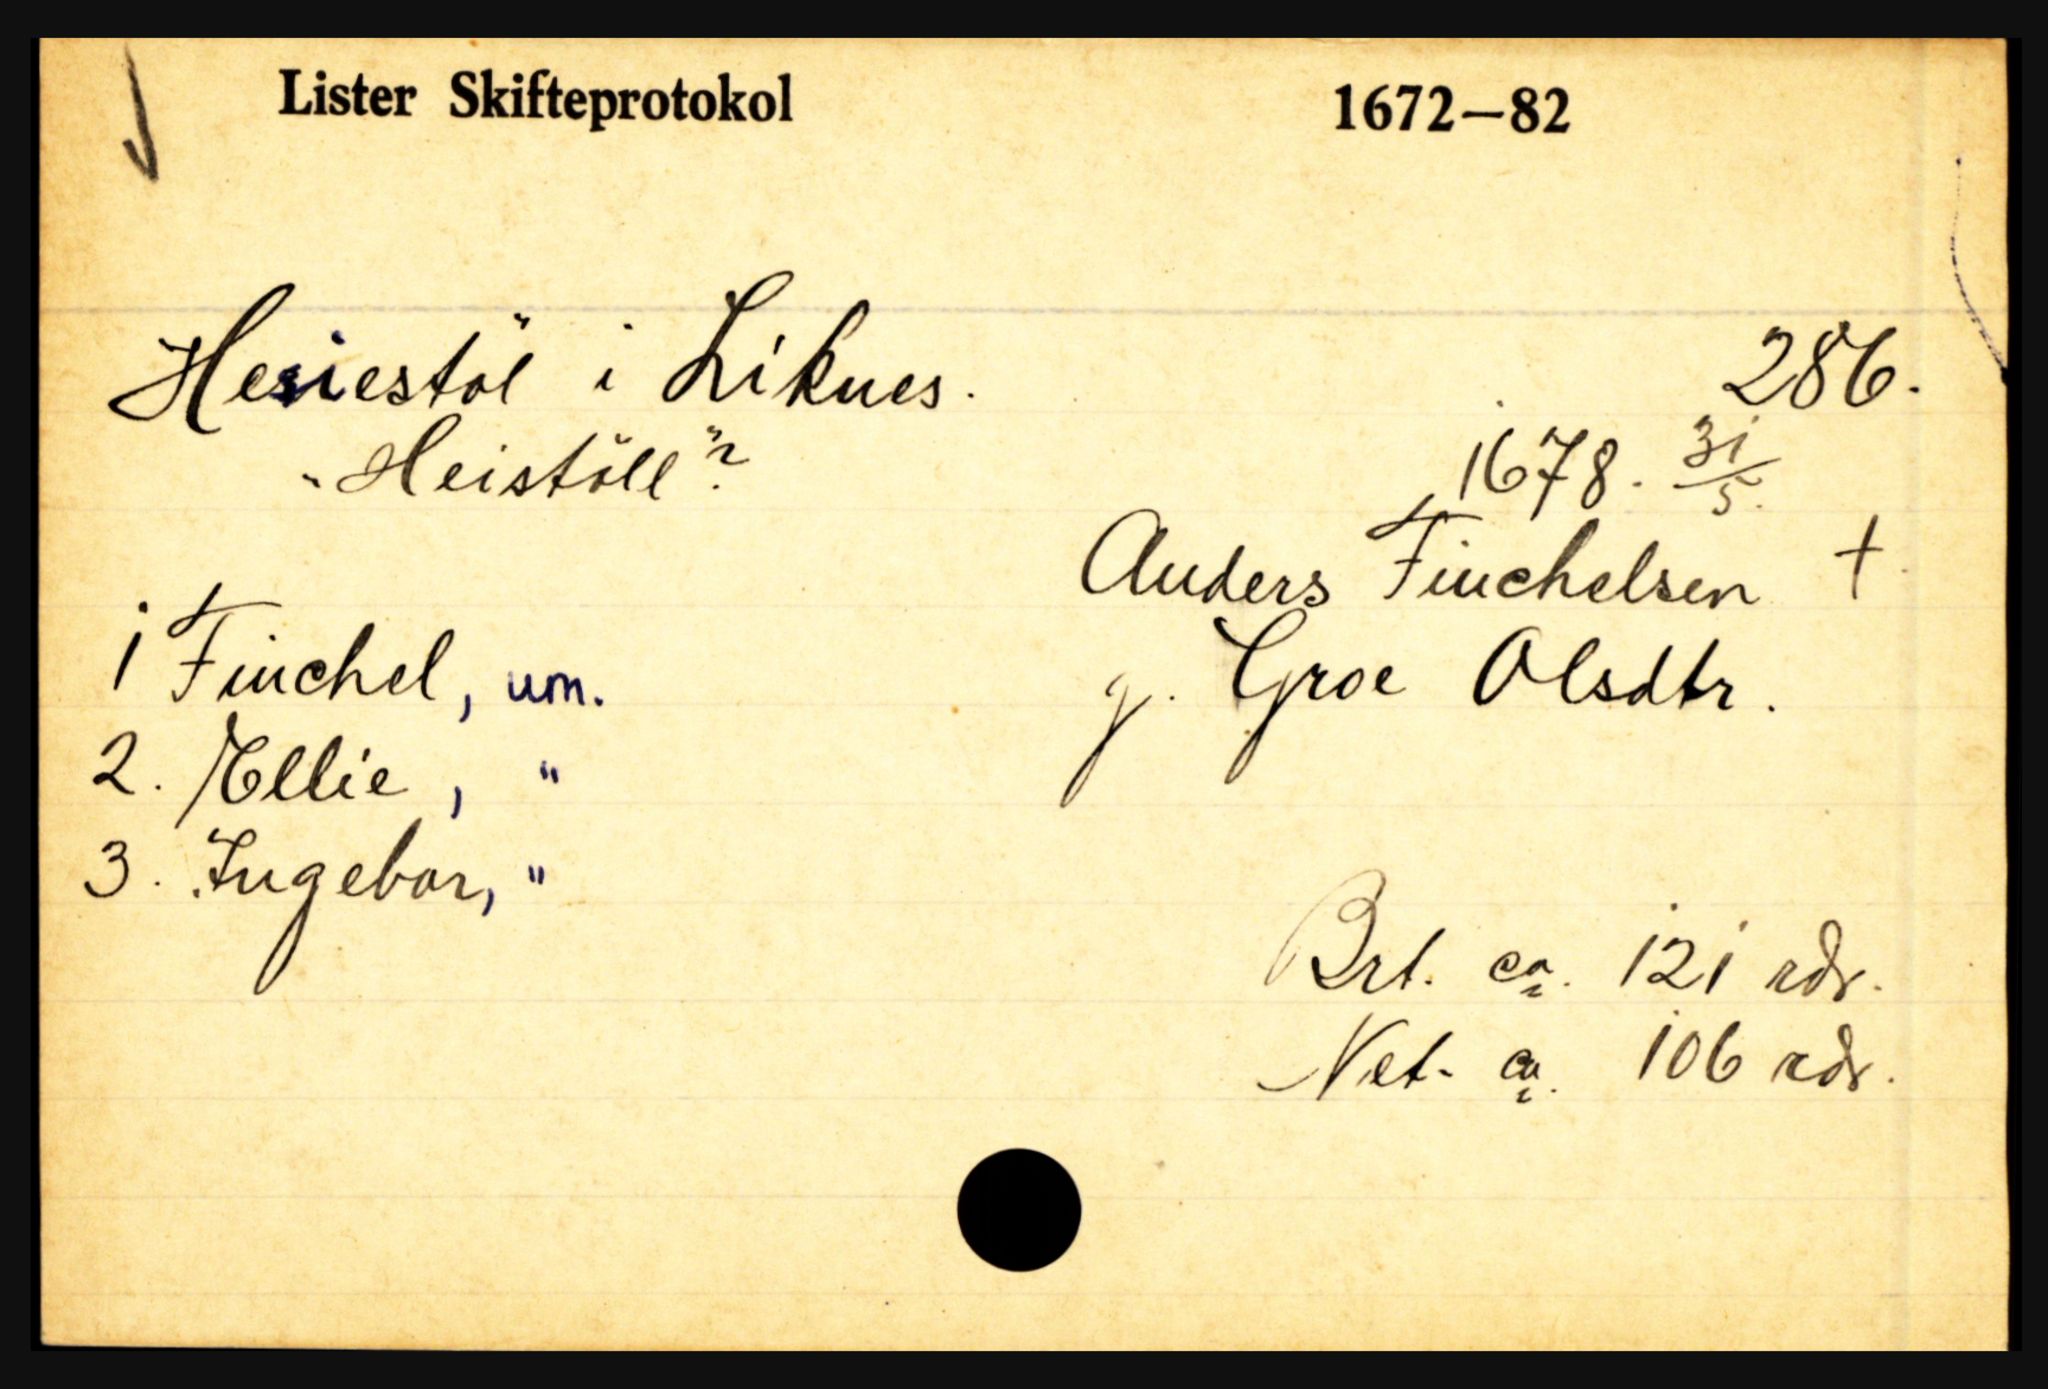 Lister Skifteprotokol 1672–82
Heiestöl i Liknes. 286.
"Heistöll"?
1678. 31/5.
Anders Finchelsen †
g. Groe Olsdtr.
1 Finchel, um.
2. Ellie, "
3. Ingebor, "
Brt. ca. 121 rdr.
Net. ca. 106 rdr.